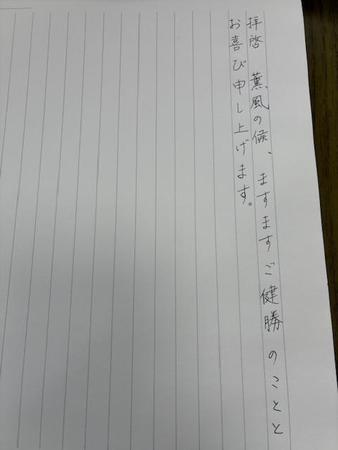 拝啓 薫風の候、ますますご健勝のことと
お喜び申し上げます。